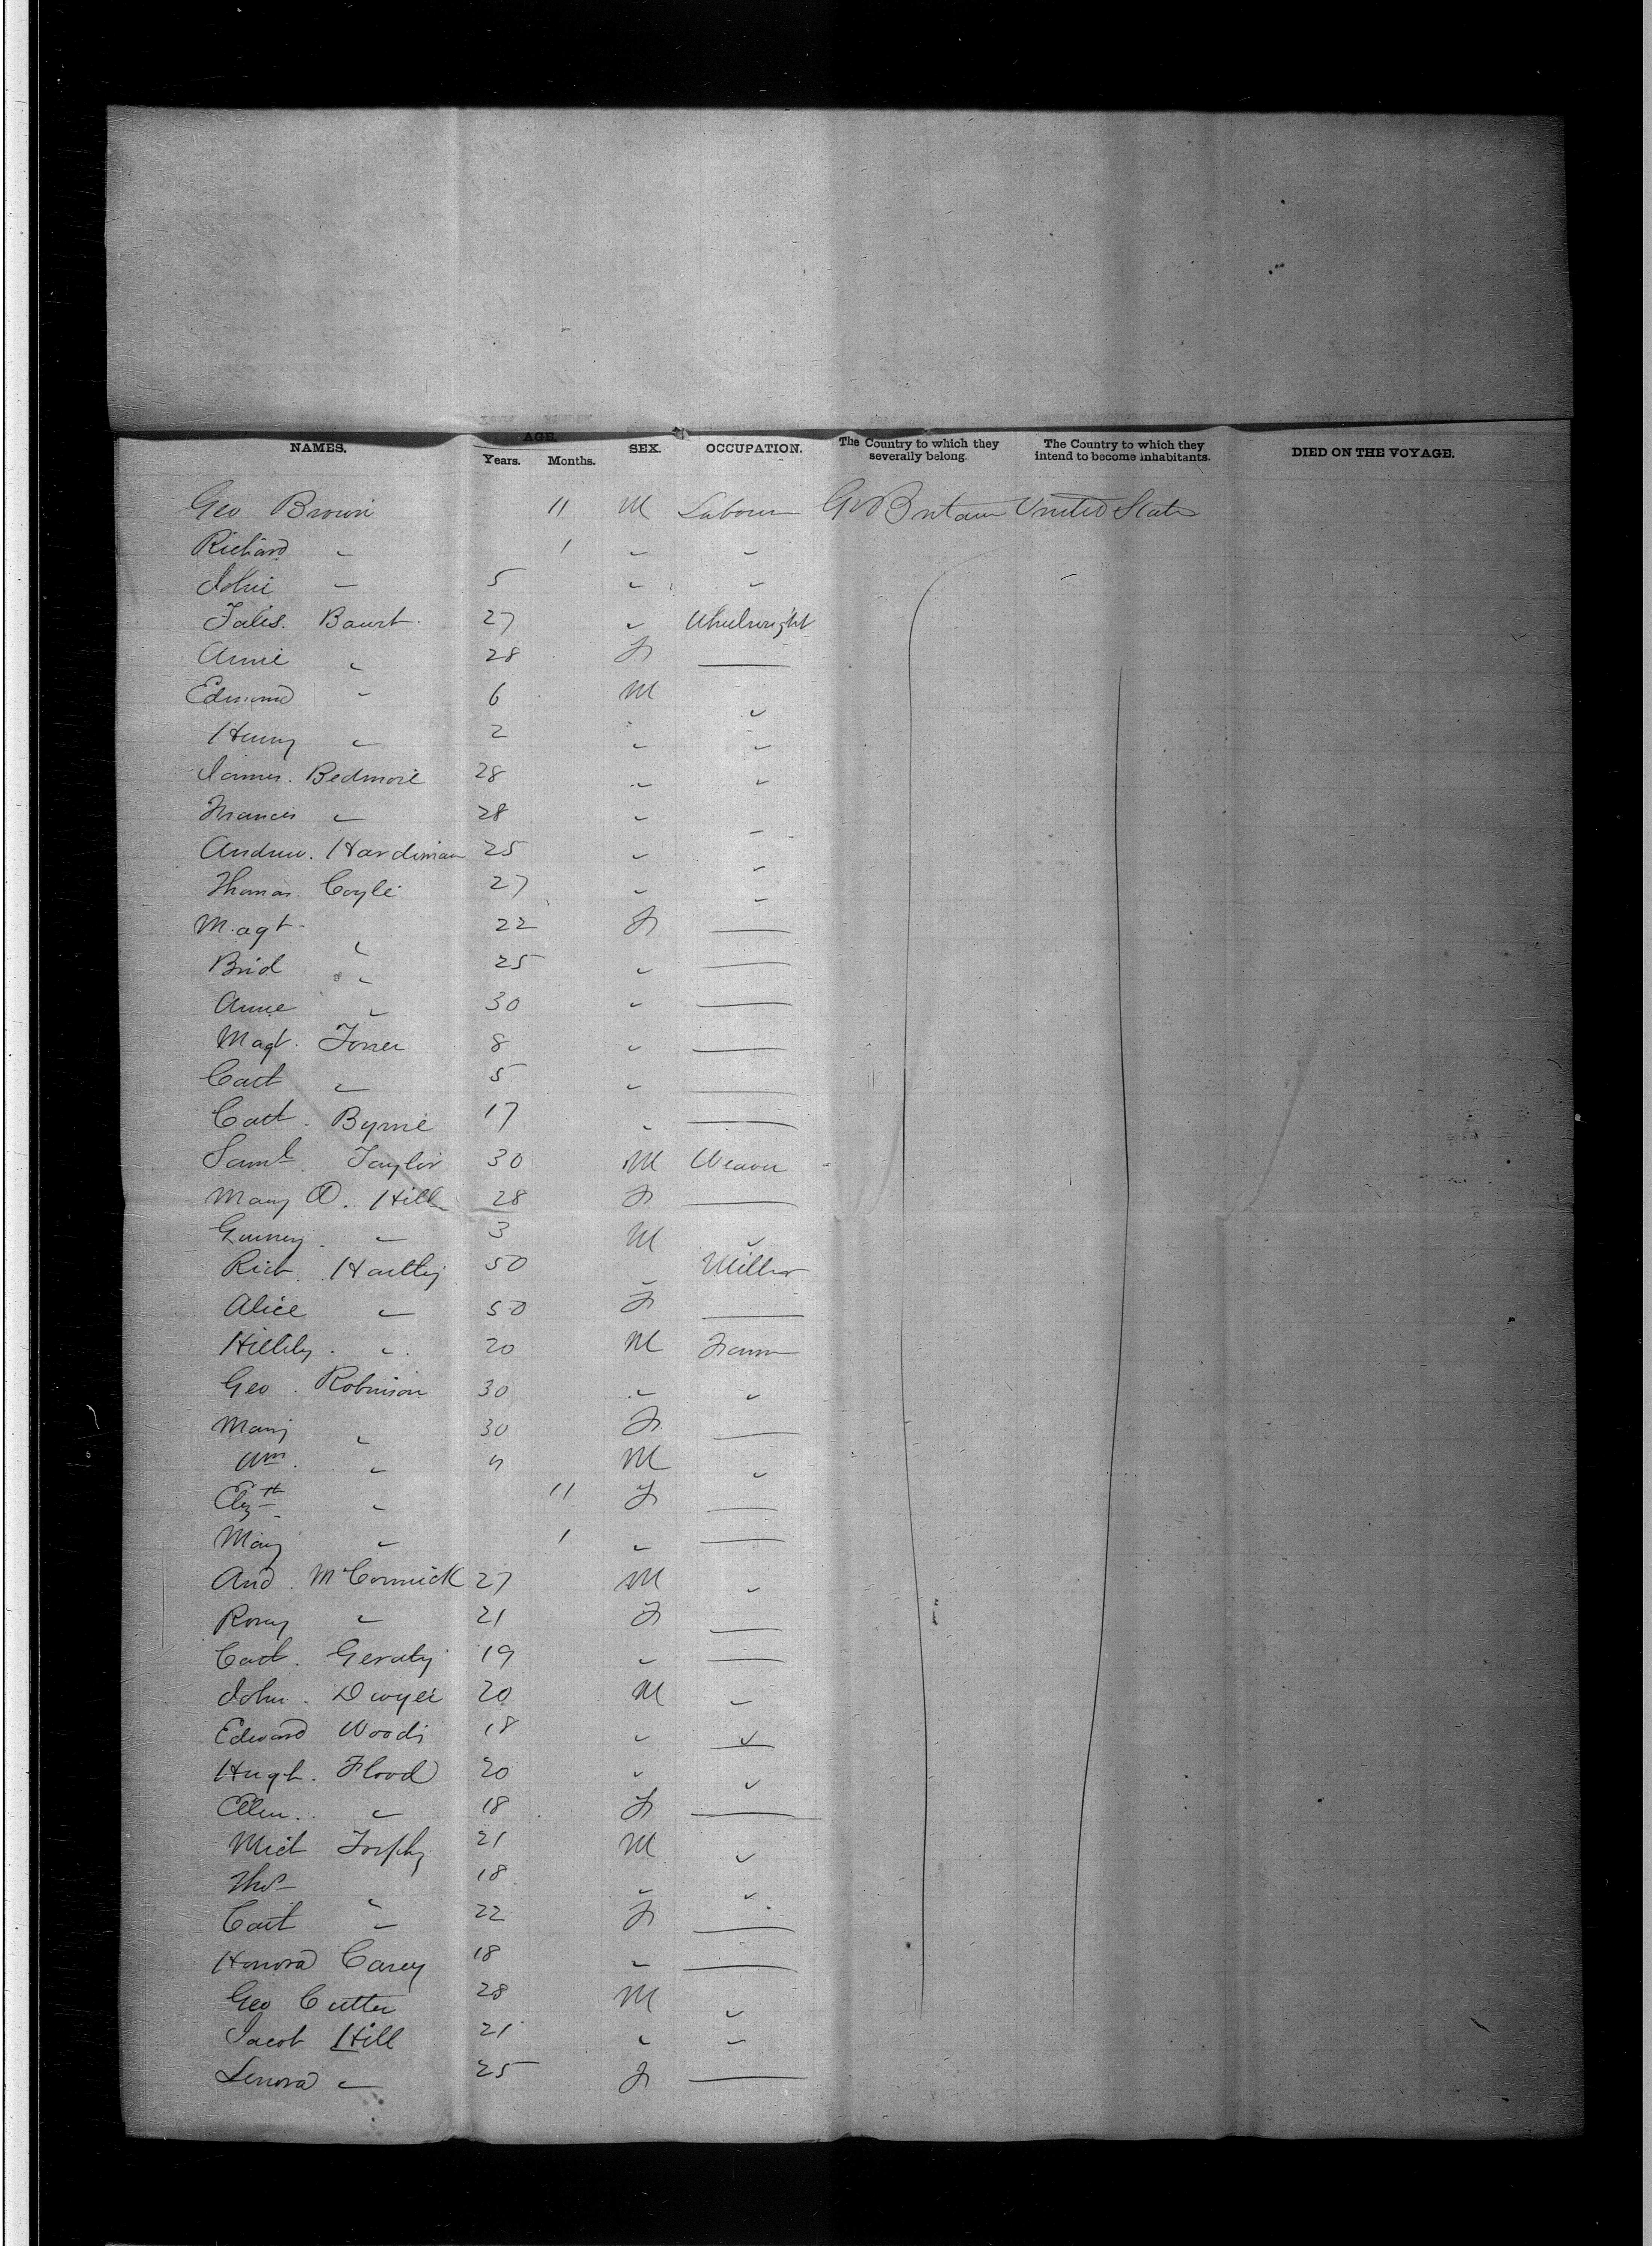 NAMES. AGE. Years. Months. SEX. OCCUPATION. The Country to which they severally belong. The Country to which they intend to become inhabitants. DIED ON THE VOYAGE.
Geo Brown 11 M Labourer Gt Britain United States
Richard " 1 " "
John " 5 " "
27 " Wheelwright
Annie " 28 F —
Edmond " 6 M "
Henry " 2 " "
James. Bedmore 28 " "
Francis " 28 " "
Andrew. Hardiman 25 " "
Thomas. Coyle 27 " "
Magt. " 22 F —
Brid " 25 " —
Anne " 30 " —
Magt. 8 " —
Cath " 5 " —
Cath. Byrne 17 " —
Saml. Taylor 30 M Weaver
Mary A. Hill 28 F —
" 3 M "
Rich. Hartley 50 " Miller
Alice " 50 F —
" 20 M
Geo. Robinson 30 " "
Mary " 30 F —
Wm. " M "
Elizth " 11 F —
Mary " 1 " —
And. McCormick 27 M "
Rosy " 21 F —
Cath. Geraty 19 " —
John. Dwyer 20 M "
Edward Woods 18 " "
Hugh. Flood 20 " "
Ellen. " 18 F —
Mich 21 M "
Thos " 18 " "
Cath " 22 F —
Honora Carey 18 " —
Geo Cutter 28 M "
Jacob Hill 21 " "
Lenora " 25 F —